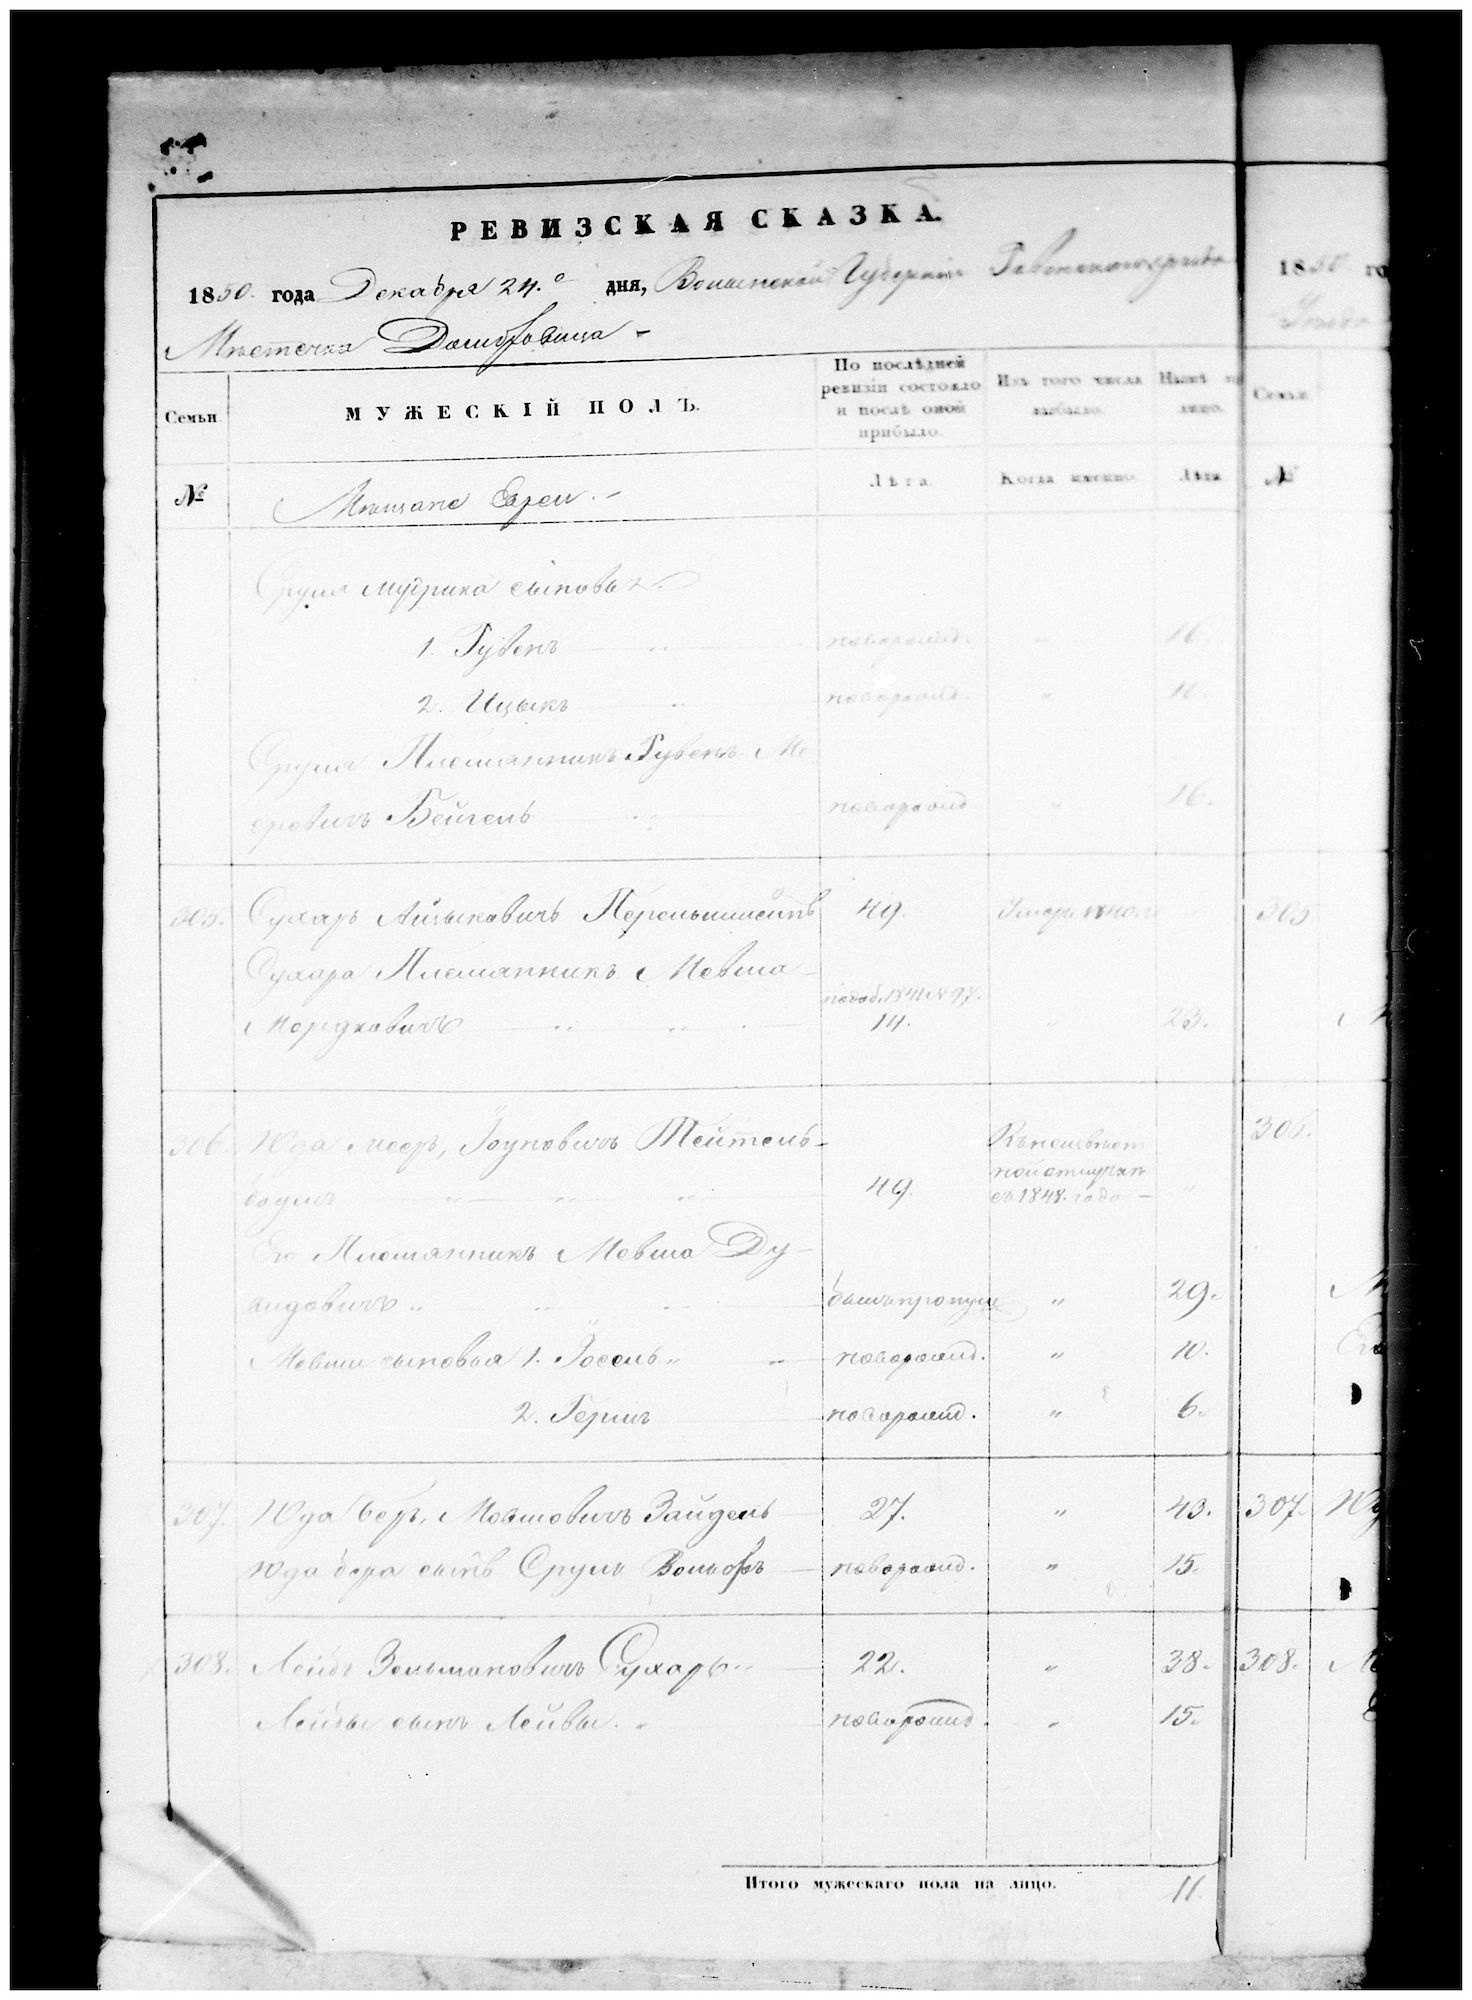 РЕВИЗСКАЯ СКАЗКА.
1850. года Декабря 24.го дня, Волынской Губернии Ровенского уезда
Мѣстечка Домбровица
Семьи.
МУЖЕСКІЙ ПОЛЪ.
По послѣдней ревизіи состояло и послѣ оной прибыло.
Изъ того числа выбыло.
Нынѣ на лицо.
Семьи.
№
Мѣщане Евреи.
Лѣта.
Когда именно.
Лѣта.
№
Сруля Мудрика сыновья
1. Рувенъ новорожд. " 16.
2. Ицыкъ новорожд. " 10.
Сруля Племянникъ Рувенъ Ме
еровичъ Бейгель новорожд. " 16.
305. Сухаръ Айзыковичъ 49. 305.
Сухара Племянникъ Мовша
Мордковичъ 14. " 23.
306. Юда Меер, Іоуповичъ Тейтель- 306.
баумъ 49. съ 1848. года "
Его Племянникъ Мовша Ду-
видовичъ былъ пропущ. " 29.
Мовши сыновья 1. Іосель новорожд. " 10.
2. Гершъ новорожд. " 6.
307. Юда Беръ, Мовшовичъ Зайдель 27. " 43. 307. Юд
Юда Бера сынъ Сруль Вольфъ новорожд. " 15.
308. Лейбъ Зельмановичъ Сухаръ 22. " 38. 308.
Лейбы сынъ Лейвы новорожд. " 15.
Итого мужескаго пола на лицо. 11.